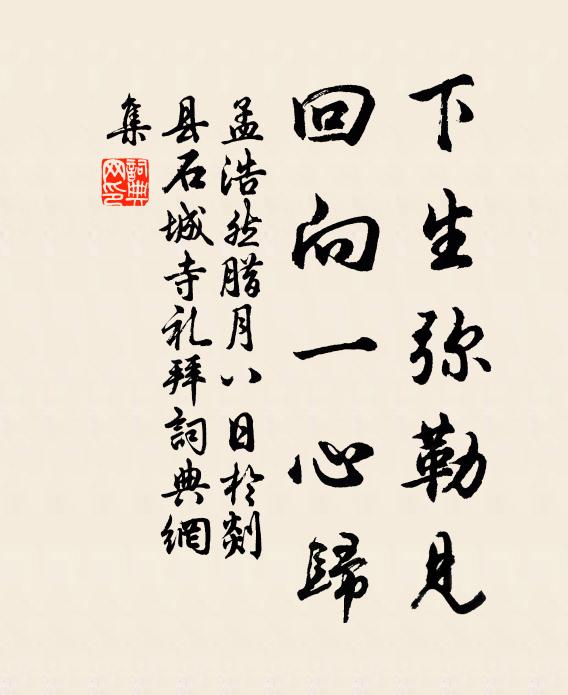 下生弥勒见
回向一心歸
孟浩然腊月八日於剡
县石城寺礼拜詞典網
集
詞典網印